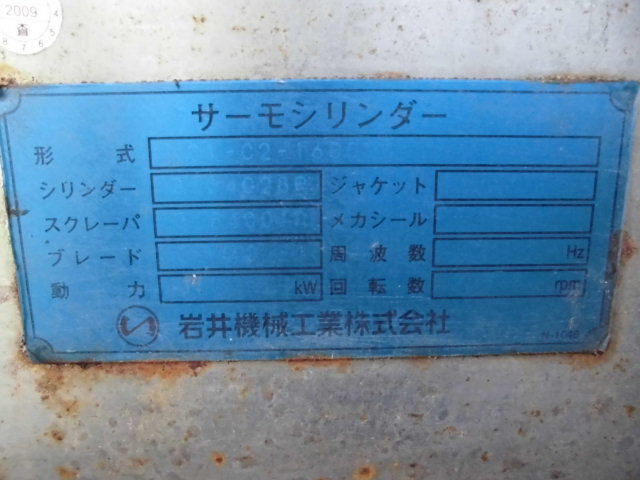 2009
サーモシリンダー
形式
シリンダー ジャケット
スクレーパ メカシール
ブレード 周波数 Hz
動力 kW 回転数 rpm
岩井機械工業株式会社